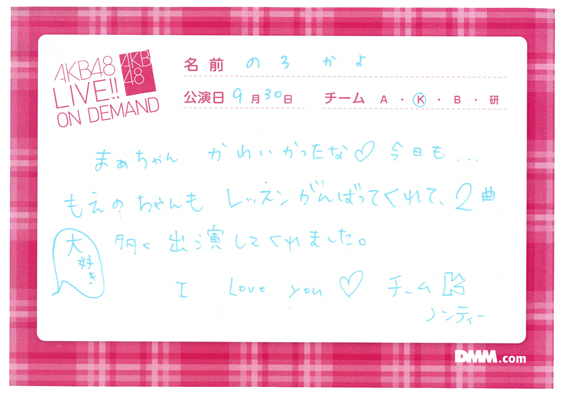 AKB48
LIVE!!
ON DEMAND
AKB
48
名前 のろ かよ
公演日 9月30日 チーム A・K・B・研
まぁちゃん かわいかったな♡ 今日も...
もえのちゃんも レッスンがんばってくれて、2曲
多く 出演してくれました。
大好き
I Love you ♡ チームK
ノンティー
DMM.com